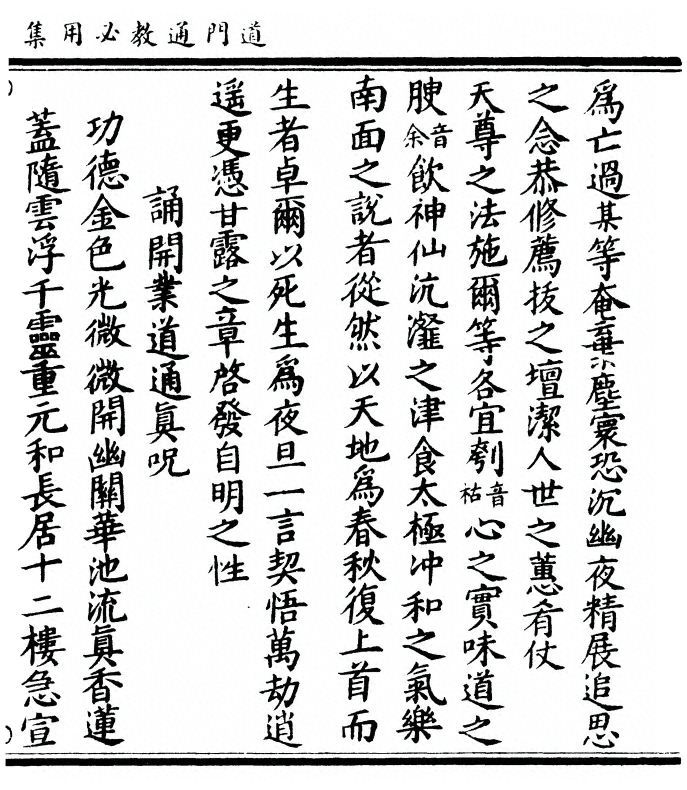 道門通教必用集
爲亡過某等奄棄塵寰恐沉幽夜精展追思
之念恭修薦拔之壇潔人世之蕙肴仗
天尊之法施爾等各宜刳音枯心之實味道之
腴音余飲神仙沆瀣之津食太極冲和之氣樂
南面之說者從然以天地爲春秋復上首而
生者卓爾以死生爲夜旦一言契悟萬劫逍
遥更憑甘露之章啓發自明之性
誦開業道通眞呪
功德金色光微微開幽關華池流眞香蓮
蓋隨雲浮千靈重元和長居十二樓急宣